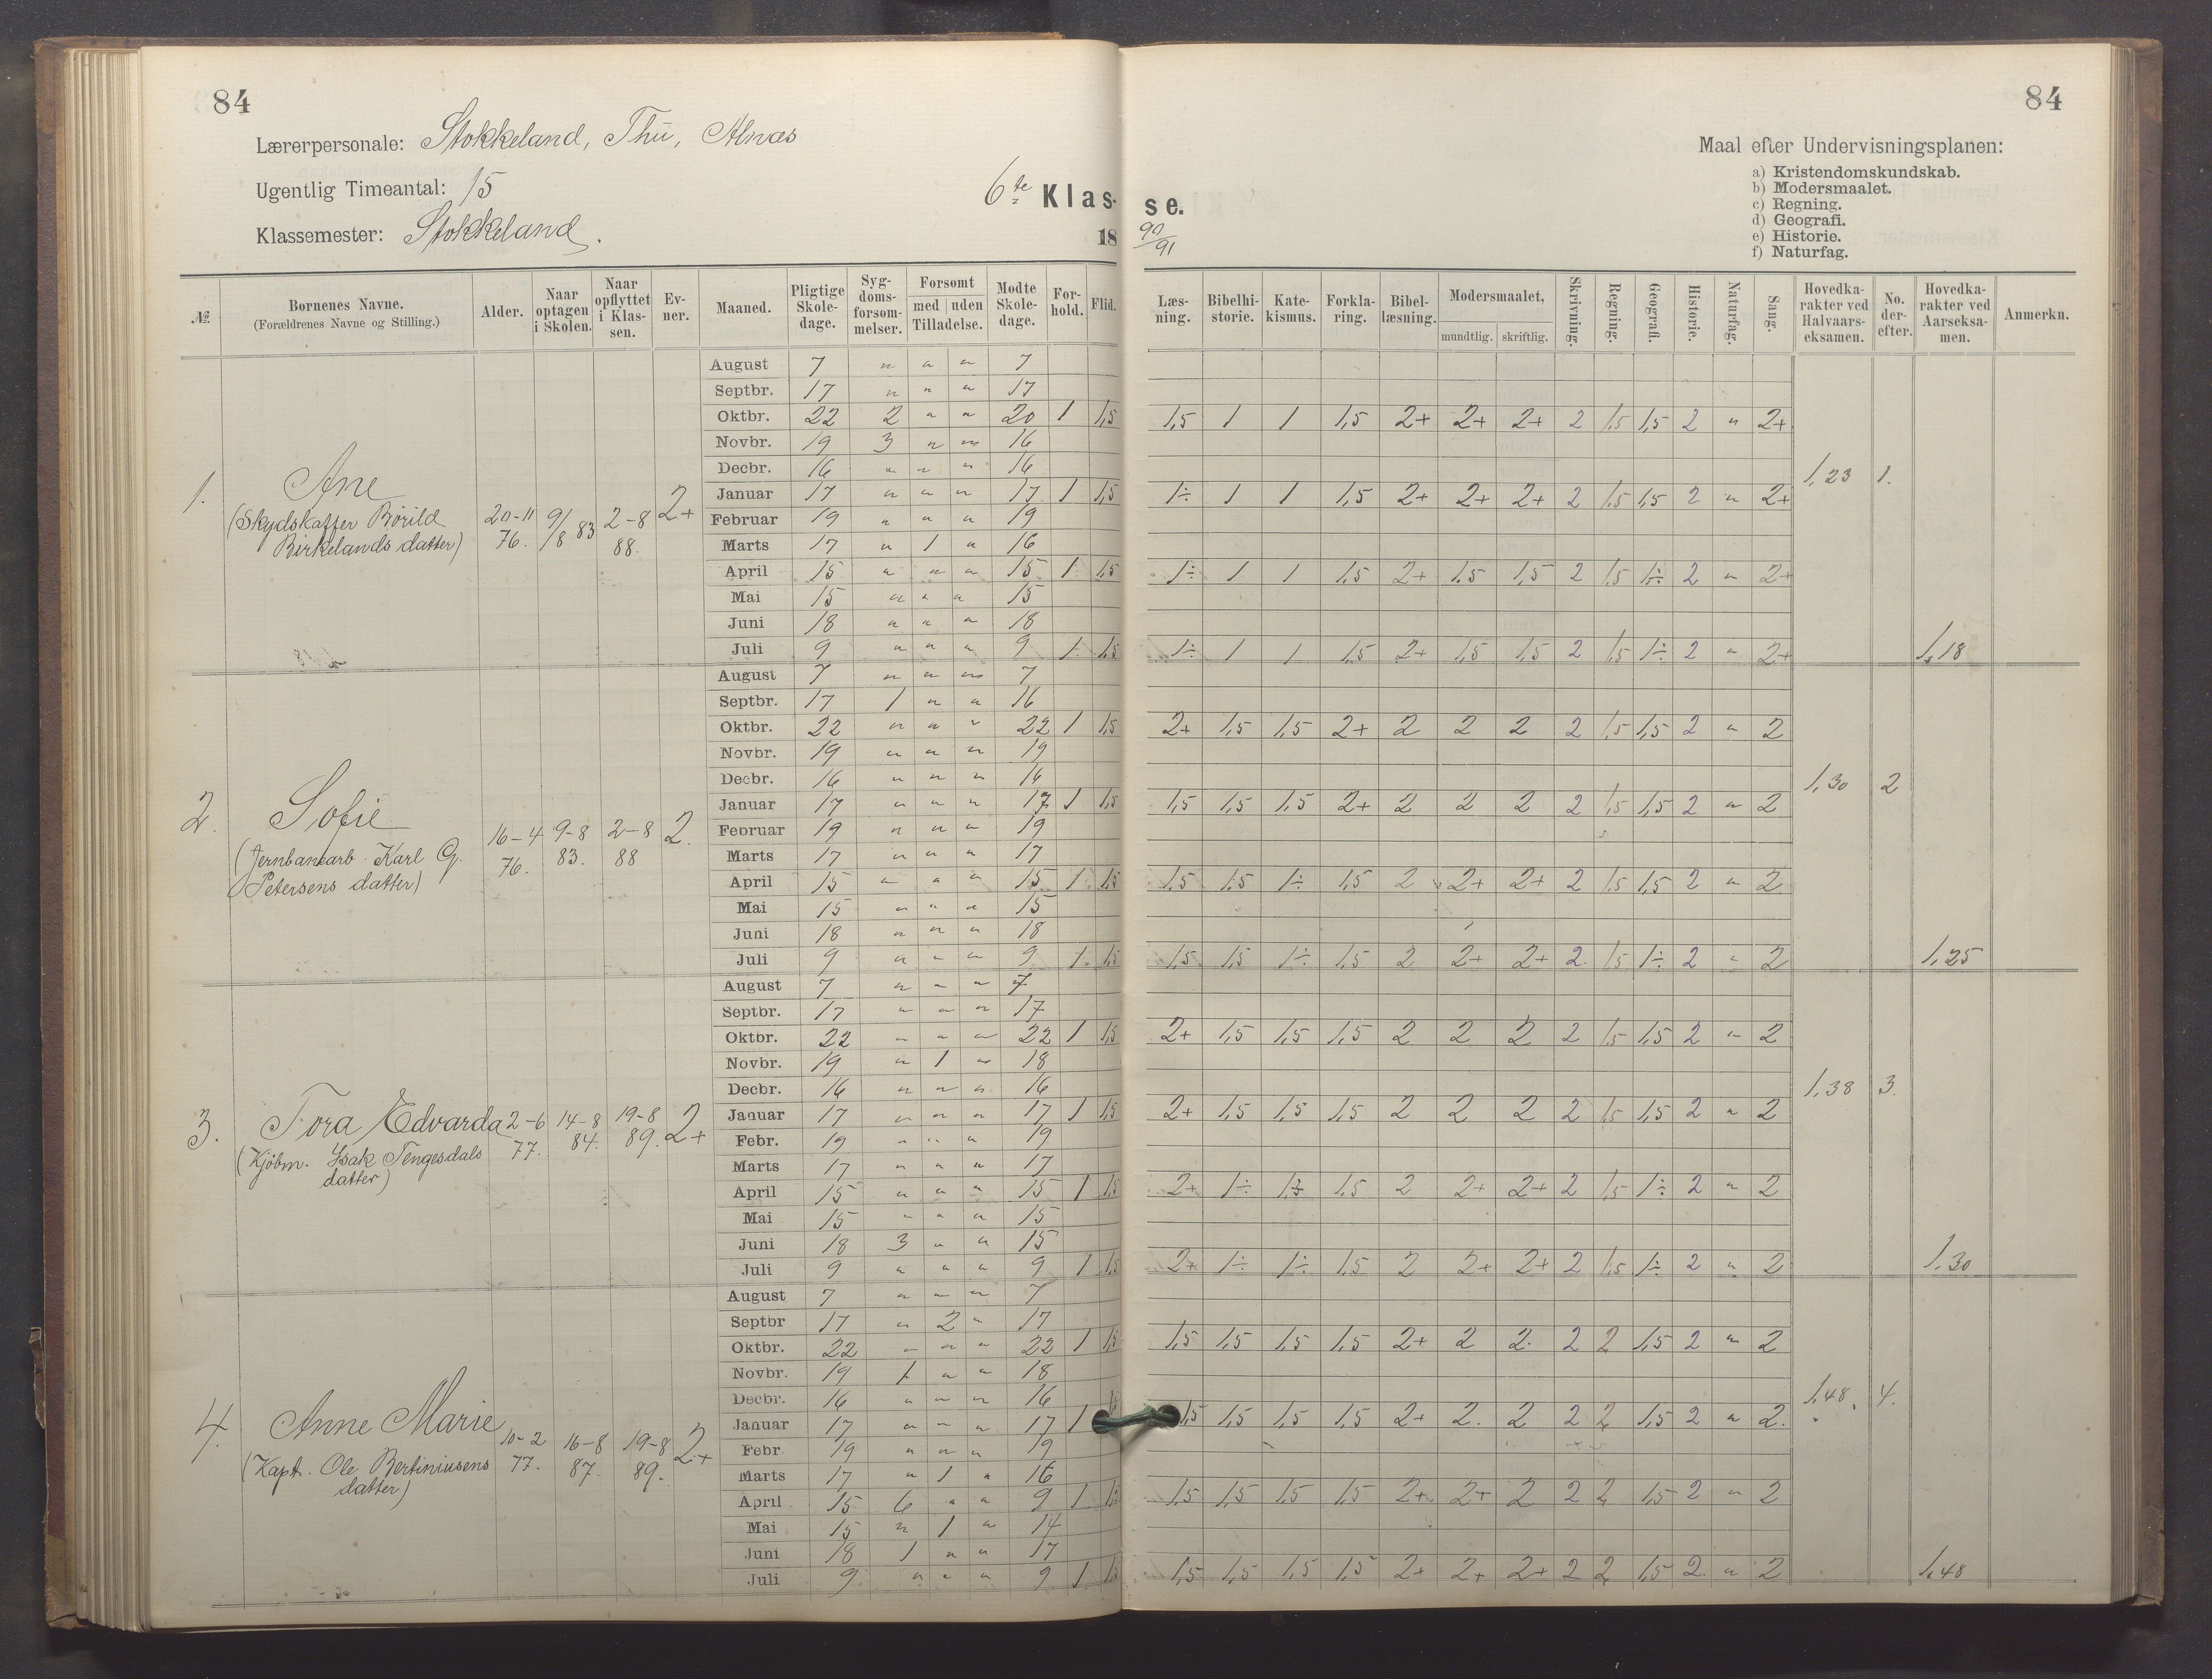 84
84
Lærerpersonale: Stokkeland, Thu, Alnæs
Ugentlig Timeantal: 15
Klassemester: Stokkeland.
6te Klas-se.
18 90/91
Maal efter Undervisningsplanen:
a) Kristendomskundskab.
b) Modersmaalet.
c) Regning.
d) Geografi.
e) Historie.
f) Naturfag.
№ Børnenes Navne. (Forældrenes Navne og Stilling.) Alder. Naar optagen i Skolen. Naar opflyttet i Klassen. Evner. Maaned. Pligtige Skoledage. Sygdomsforsømmelser. Forsømt med uden Tilladelse. Mødte Skoledage. Forhold. Flid. Læsning. Bibelhistorie. Katekismus. Forklaring. Bibellæsning. Modersmaalet, mundtlig. skriftlig. Skrivning. Regning. Geografi. Historie. Naturfag. Sang. Hovedkarakter ved Halvaarseksamen. No. derefter. Hovedkarakter ved Aarseksamen. Anmerkn.
1. Ane
(Skydskaffer Börild
Birkelands datter)
20-11 76. 9/8 83 2-8 88. 2+
August 7 " " " 7
Septbr. 17 " " " 17
Oktbr. 22 2 " " 20 1 1,5 1,5 1 1 1,5 2+ 2+ 2+ 2 1,5 1,5 2 " 2+
Novbr. 19 3 " " 16
Decbr. 16 " " " 16
1,23 1.
Januar 17 " " " 17 1 1,5 1÷ 1 1 1,5 2+ 2+ 2+ 2 1,5 1,5 2 " 2+
Februar 19 " " " 19
Marts 17 " 1 " 16
April 15 " " " 15 1 1,5 1÷ 1 1 1,5 2+ 1,5 1,5 2 1,5 1÷ 2 " 2+
Mai 15 " " " 15
Juni 18 " " " 18
Juli 9 " " " 9 1 1,5 1÷ 1 1 1,5 2+ 1,5 1,5 2 1,5 1÷ 2 " 2+ 1,18
2. Sofie
(Jernbanearb. Karl G.
Petersens datter)
16-4 76. 9-8 83. 2-8 88 2.
August 7 " " " 7
Septbr. 17 1 " " 16
Oktbr. 22 " " " 22 1 1,5 2+ 1,5 1,5 2+ 2 2 2 2 1,5 1,5 2 " 2
Novbr. 19 " " " 19
Decbr. 16 " " " 16
1,30 2
Januar 17 " " " 17 1 1,5 1,5 1,5 1,5 2+ 2 2 2 2 1,5 1,5 2 " 2
Februar 19 " " " 19
Marts 17 " " " 17
April 15 " " " 15 1 1,5 1,5 1,5 1÷ 1,5 2 2+ 2+ 2 1,5 1,5 2 " 2
Mai 15 " " " 15
Juni 18 " " " 18
Juli 9 " " " 9 1. 1,5 1,5 1,5 1÷ 1,5 2 2+ 2+ 2. 1,5 1÷ 2 " 2 1,25
3. Tora Edvarda
(Kjöbm. Isak Tengesdals
datter)
2-6 77. 14-8 84. 19-8 89. 2+
August 7 " " " 7
Septbr. 17 " " " 17
Oktbr. 22 " " " 22 1 1,5 2+ 1,5 1,5 1,5 2 2 2 2 1,5 1,5 2 " 2
Novbr. 19 " 1 " 18
Decbr. 16 " " " 16
1,38 3.
Januar 17 " " " 17 1 1,5 2+ 1,5 1,5 1,5 2 2 2 2 1,5 1,5 2 " 2
Febr. 19 " " " 19
Marts 17 " " " 17
April 15 " " " 15 1 1,5 2+ 1÷ 1÷ 1,5 2 2+ 2+ 2 1,5 1÷ 2 " 2
Mai 15 " " " 15
Juni 18 3 " " 15
Juli 9 " " " 9 1 1,5 2+ 1÷ 1÷ 1,5 2 2+ 2+ 2 1,5 1÷ 2 " 2 1,30
4. Anne Marie
(Kapt. Ole Bertiniusens
datter)
10-2 77. 16-8 87. 19-8 89. 2+
August 7 " " " 7
Septbr 17 " 2 " 17
Oktbr. 22 " " " 22 1 1,5 1,5 1,5 1,5 1,5 2+ 2 2. 2 2 1,5 2 " 2
Novbr. 19 1 " " 18
Decbr. 16 " " " 16
1,48. 4.
Januar 17 " " " 17 1 1,5 1,5 1,5 1,5 2+ 2. 2 2 2 1,5 2 " 2.
Febr 19 " " " 19
Marts 17 " 1 " 16
April 15 6 " " 9 1 1,5 1,5 1,5 1,5 1,5 2+ 2+ 2 2 2 1,5 2 " 2
Mai 15 " 1 " 14
Juni 18 1 " " 17
Juli 9 " " " 9 1 1,5 1,5 1,5 1,5 1,5 2+ 2+ 2+ 2 2 1,5 2. " 2 1,48